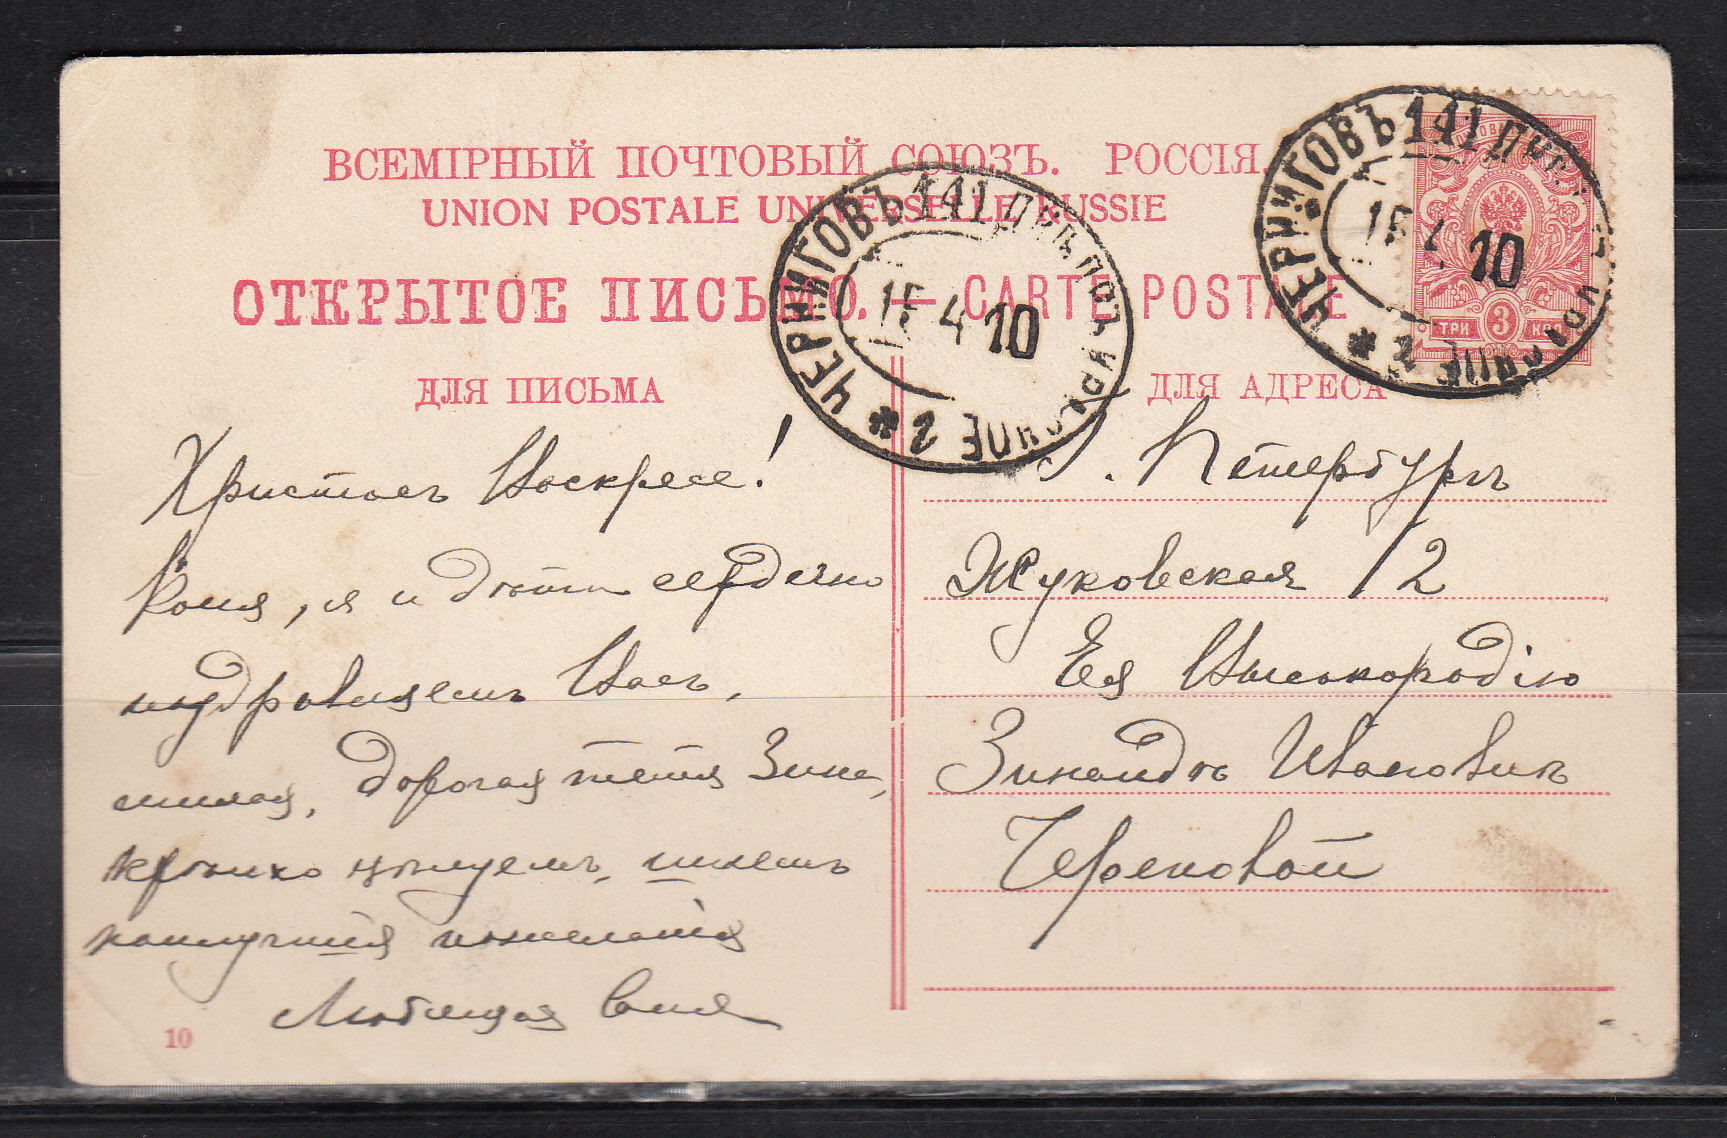 ВСЕМІРНЫЙ ПОЧТОВЫЙ СОЮЗЪ. РОССІЯ.
UNION POSTALE UNIVERSELLE RUSSIE
ОТКРЫТОЕ ПИСЬМО. — CARTE POSTALE
ДЛЯ ПИСЬМА
Христосъ Воскресе!
Коля, я и дѣти сердечно
поздравляемъ Васъ,
милая, дорогая тетя Зина,
крѣпко цѣлуемъ, шлемъ
наилучшія пожеланія
Любящая
10
ДЛЯ АДРЕСА
Петербургъ
Жуковская 12
Ея Высокородію
Зинаидѣ Ивановнѣ
ЧЕРНИГОВЪ 141
15 4 10
2
ЧЕРНИГОВЪ 141
15 4 10
2
ТРИ 3 КОП